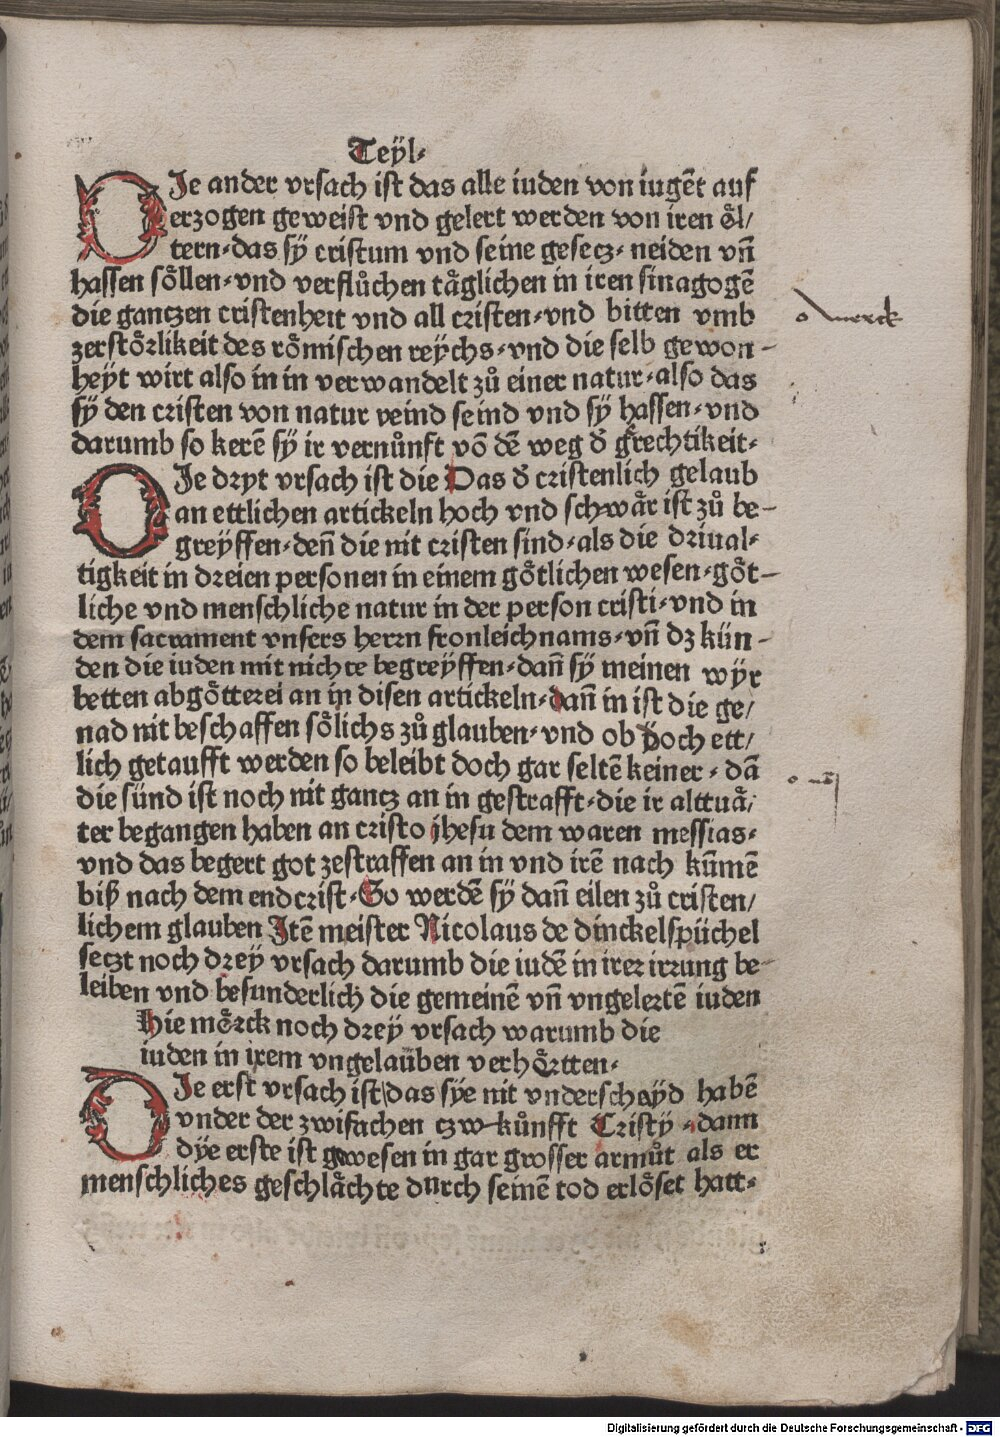 Teÿl·
DJe ander vrsach ist das alle iuden von iugēt auf
erzogen geweist vnd gelert werden von iren oͤl/
tern·das sÿ cristum vnd seine gesecz· neiden vñ
hassen soͤllen·vnd verfluͦchen taͤglichen in iren sinagogē
die ganczen cristenheit vnd all cristen·vnd bitten vmb
zerstoͤrlikeit des roͤmischen reÿchs·vnd die selb gewon-
heÿt wirt also in in verwandelt zuͦ einer natur·also das
sÿ den cristen von natur veind seind vnd sÿ hassen·vnd
darumb so kerē sÿ ir vernuͦnft vō dē weg d̕ grechtikeit·
DJe dryt vrsach ist die Das d̕ cristenlich gelaub
an ettlichen artickeln hoch vnd schwaͤr ist zuͦ be-
greÿffen·deñ die nit cristen sind·als die driual·
tigkeit in dreien personen in einem goͤtlichen wesen·goͤt-
liche vnd menschliche natur in der person cristi·vnd in
dem sacrament vnsers herrn fronleichnams·vñ dz kün-
den die iuden mit nichte begreÿffen·dañ sÿ meinen wÿr
betten abgoͤtterei an in disen artickeln·dañ in ist die ge/
nad nit beschaffen soͤlichs zuͦ glauben·vnd ob ÿoch ett/
lich getaufft werden so beleibt doch gar seltē keiner·dā
die sünd ist noch nit gancz an in gestrafft·die ir alttuaͤ/
ter begangen haben an cristo jhesu dem waren messias·
vnd das begert got zestraffen an in vnd irē nach kūmē
biß nach dem endcrist·So werdē sÿ dañ eilen zuͦ cristen/
lichem glauben Jtē meister Nicolaus de dinckelspüchel
seczt noch dreÿ vrsach darumb die iudē in irer irrung be-
leiben vnd besunderlich die gemeinē vñ vngelertē iuden
Hie moͤrck noch dreÿ vrsach warumb die
iuden in irem vngelauben verhoͤrtten·
DJe erst vrsach ist das sÿe nit vnderschaÿd habē
vnder der zwifachen czw kuͦnfft Cristÿ·dann
dÿe erste ist gewesen in gar grosser armuͦt als er
menschliches geschlaͤchte durch seinē tod erloͤset hatt·
merck
Digitalisierung gefördert durch die Deutsche Forschungsgemeinschaft - DFG